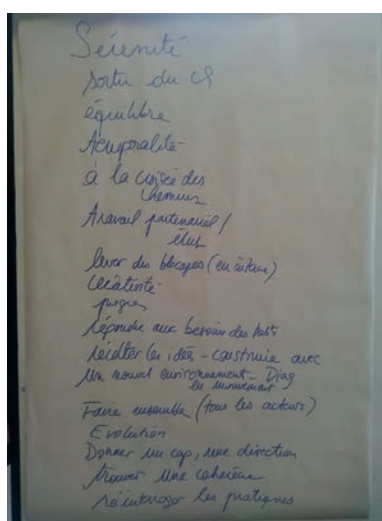 Sérénité
sortir du CS
équilibre
temporalité
à la croisée des
chemins
travail partenarial /
élus
lever des blocages (en interne)
créativité
progrès
répondre aux besoins des habts
récolter les idées - construire avec
un nouvel environnement - Diag
en mouvement
Faire ensemble (tous les acteurs)
Evolution
Donner un cap, une direction
trouver une cohérence
réinterroger les pratiques